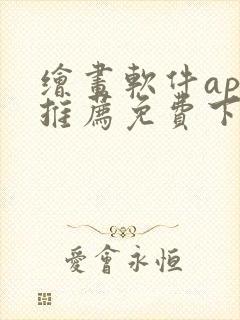 繪畫軟件ap
推薦免費下
愛會永恒